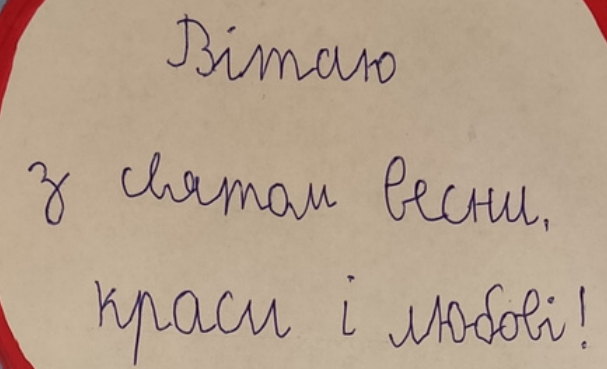 Вітаю
з святом весни,
краси і любові!